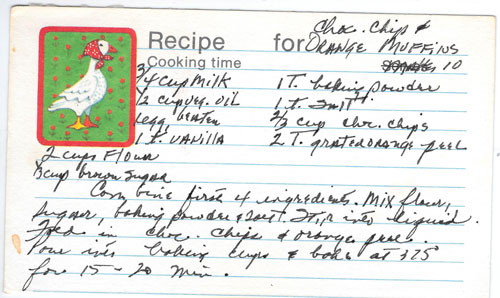 Choc. Chips &
Recipe for ORANGE MUFFINS
Cooking time 10
3/4 cup Milk 1 T. baking powder
1/2 cup veg. oil 1 t. salt
1 egg beaten 2/3 cup choc. chips
1 t. VANILLA 2 T. grated orange peel
2 cups Flour
cup brown sugar
Combine first 4 ingredients. Mix flour,
sugar, baking powder & salt. Stir into liquid.
in choc. chips & orange peel.
Pour into baking cups & bake at 375°
for 15 - 20 min.